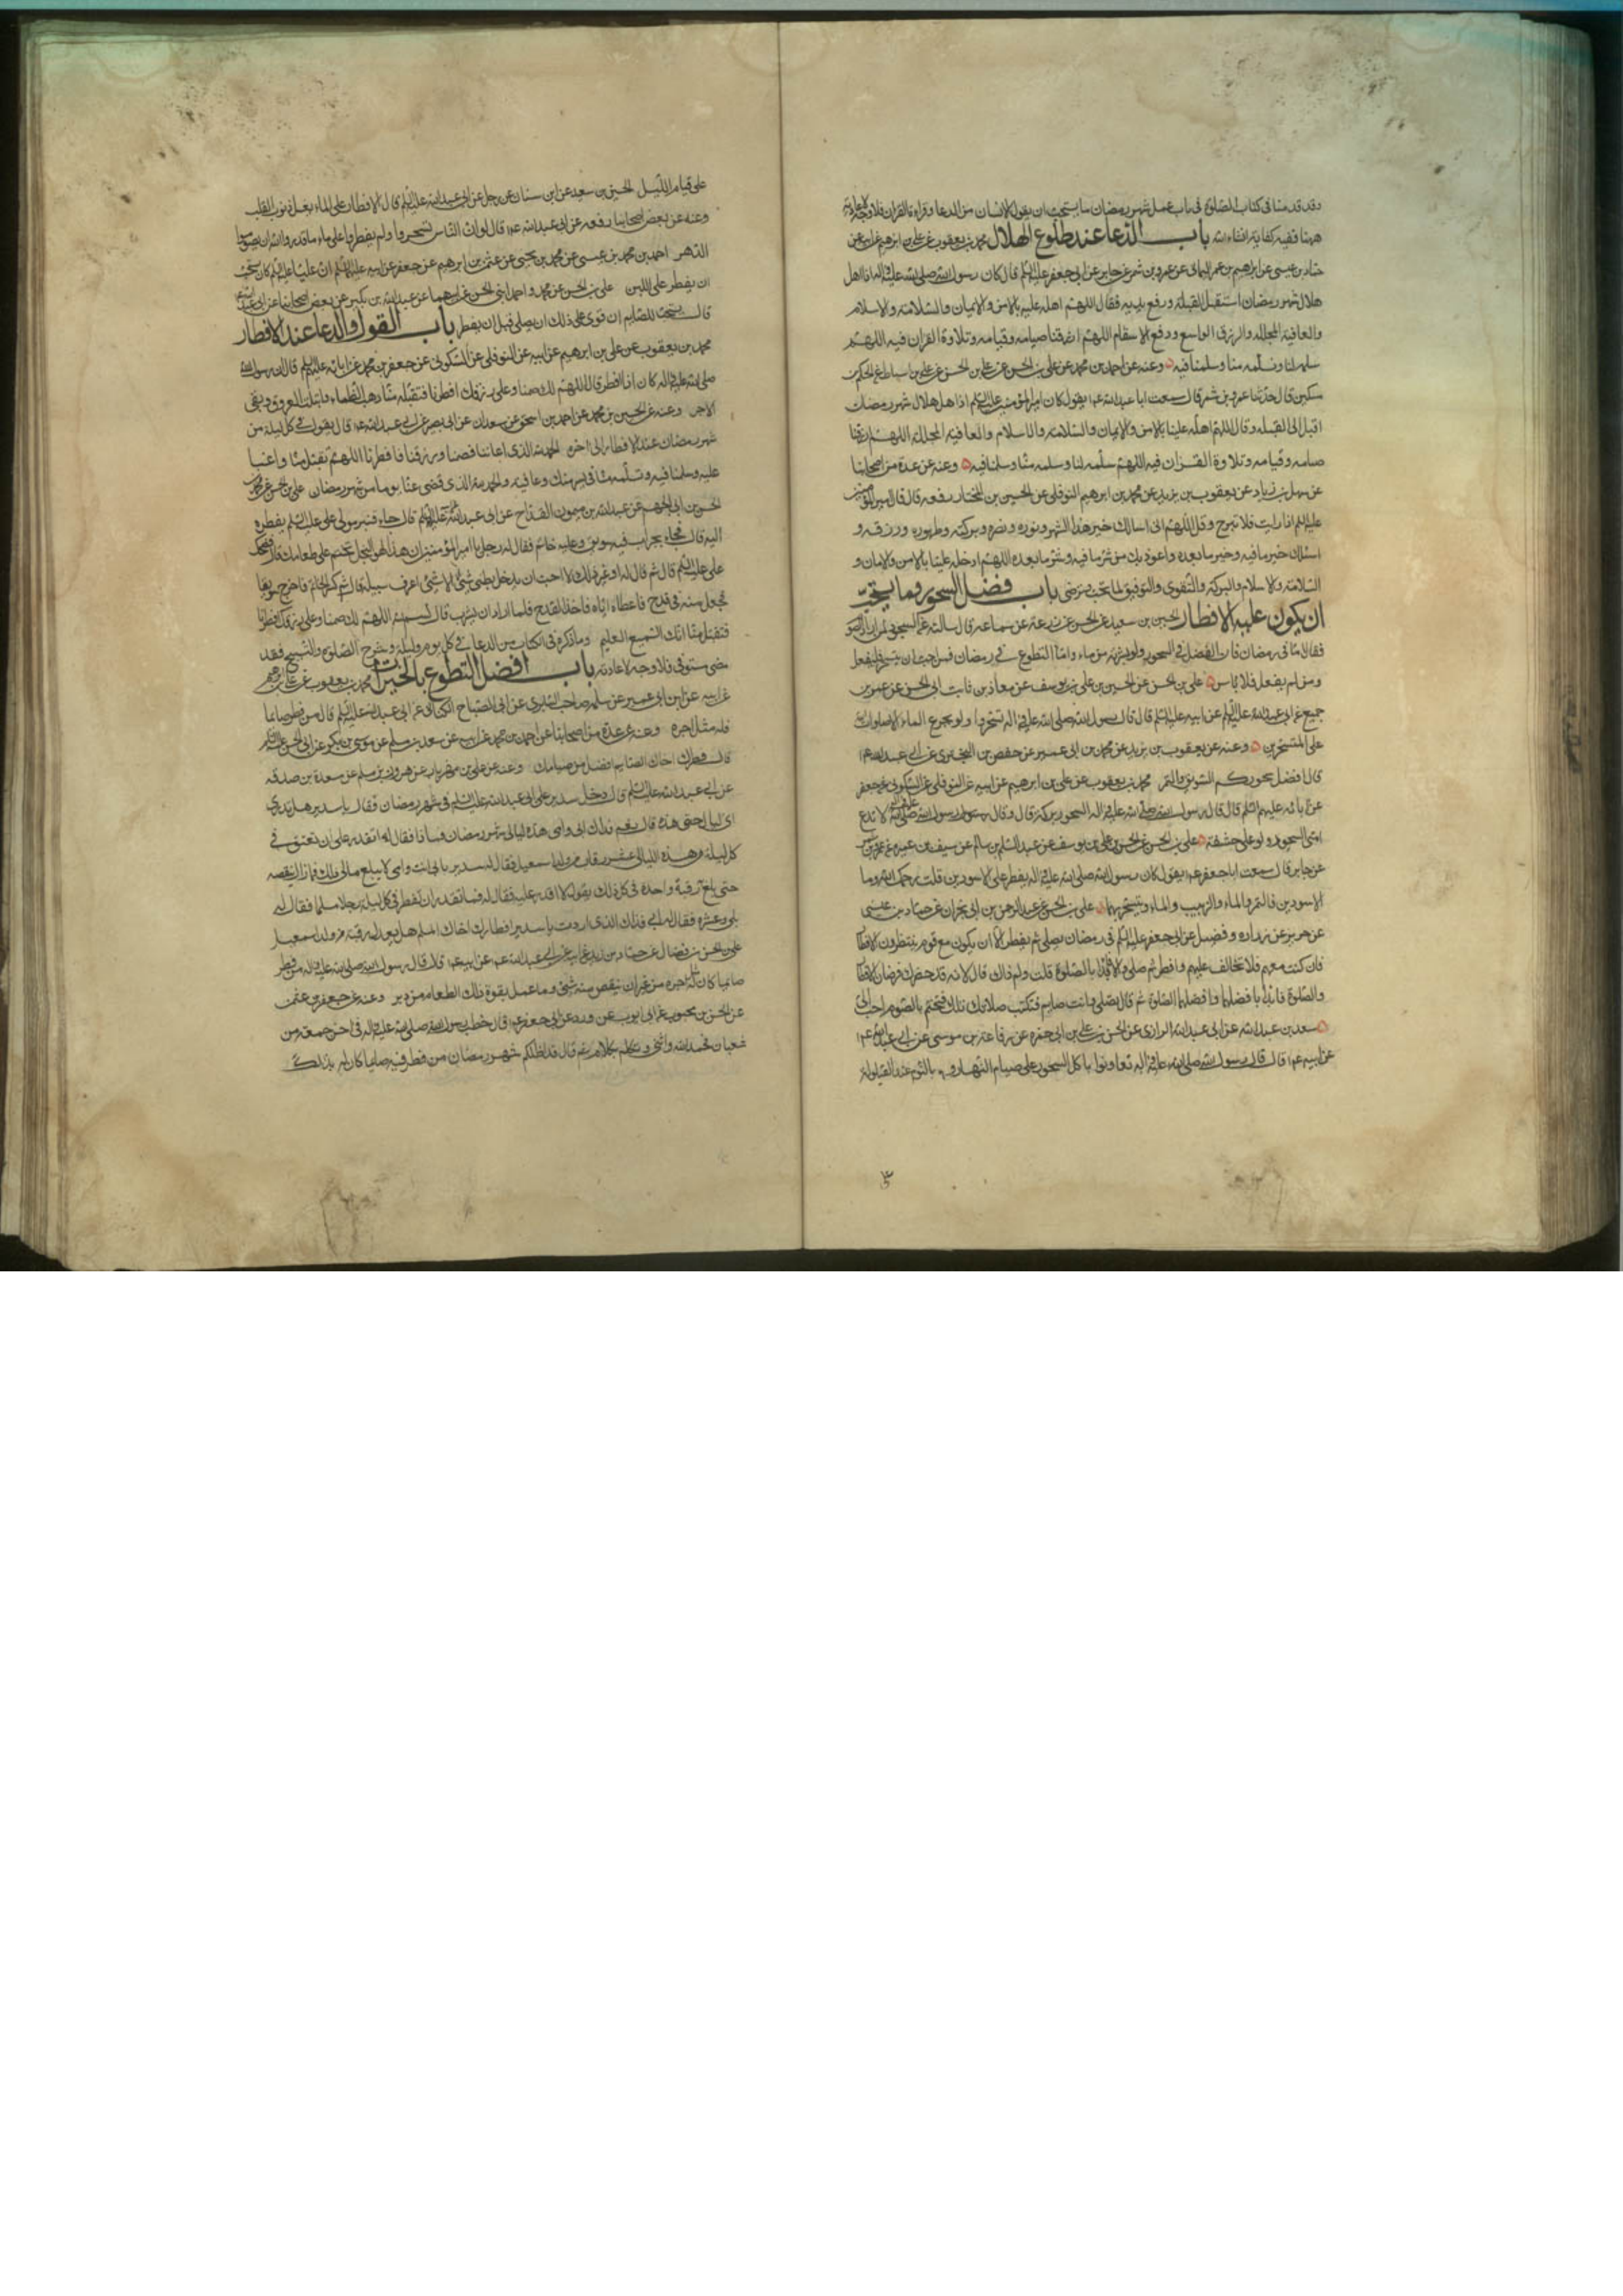 وقد قدمنا فى كتاب الصلوة فى باب عمل شهر رمضان ما يستحب ان يقوله الانسان من الدعا وقراءة القران فلا وجه لاعادته
ههنا ففيه كفاية انشاء الله باب الدعا عند طلوع الهلال محمد بن يعقوب عن على بن ابرهيم عن ابيه عن
حماد بن عيسى عن ابرهيم بن عمر اليمانى عن عمرو بن شمر عن جابر عن ابى جعفر عليه السلم قال كان رسول الله صلى الله عليه واله اذا اهل
هلال شهر رمضان استقبل القبلة ورفع يديه فقال اللهم اهله علينا بالامن والايمان والسلامة والاسلام
والعافية المجللة والرزق الواسع ودفع الاسقام اللهم ارزقنا صيامه وقيامه وتلاوة القران فيه اللهم
سلمه لنا وتسلمه منا وسلمنا فيه وعنه عن احمد بن محمد عن على بن الحسن عن على بن اسباط عن الحكم بن
مسكين قال حدثنا عمرو بن شمر قال سمعت ابا عبد الله عم يقول كان امير المؤمنين عليه السلم اذا هل هلال شهر رمضان
اقبل الى القبلة وقال اللهم اهله علينا بالامن والايمان والسلامة والاسلام والعافية المجللة اللهم ارزقنا
صيامه وقيامه وتلاوة القران فيه اللهم سلمه لنا وسلمه منا وسلمنا فيه وعنه عن عدة من اصحابنا
عن سهل بن زياد عن يعقوب بن يزيد عن محمد بن ابرهيم النوفلى عن الحسين بن المختار رفعه قال قال امير المؤمنين
عليه السلم اذا رايت فلا تبرح وقل اللهم انى اسالك خير هذا الشهر ونوره ونصره وبركته وطهوره ورزقه و
اسئلك خير ما فيه وخير ما بعده واعوذ بك من شر ما فيه وشر ما بعده اللهم ادخله علينا بالامن والايمان و
السلامة والاسلام والبركة والتقوى والتوفيق لما تحب وترضى باب فضل السحور وما يستحب
ان يكون عليه الافطار الحسين بن سعيد عن الحسن عن زرعة عن سماعة قال سالته عن السحور لمن اراد الصوم
فقال اما فى رمضان فان الفضل فى السحور ولو بشربة من ماء واما التطوع فى رمضان فمن احب ان يتسحر فليفعل
ومن لم يفعل فلا باس على بن الحسن عن الحسين بن على بن يوسف عن معاذ بن ثابت ابى الحسن عن عمرو بن
جميع عن ابى عبد الله عليه السلم عن ابيه عليه السلم قال قال رسول الله صلى الله عليه واله تسحروا ولو بجرع الماء الا صلوات الله
على المتسحرين وعنه عن يعقوب بن يزيد عن محمد بن ابى عمير عن حفص بن البخترى عن ابى عبد الله عم
قال افضل سحوركم السويق والتمر محمد بن يعقوب عن على بن ابرهيم عن ابيه عن النوفلى عن السكونى عن جعفر
عن ابائه عليهم السلم قال قال رسول الله صلى الله عليه واله السحور بركة قال وقال رسول الله صلى الله عليه واله لا تدع
امتى السحور ولو على حشفة على بن الحسن عن الحسن بن على بن يوسف عن عبد السلم بن سالم عن سيف بن عميرة عن عمرو بن شمر
عن جابر قال سمعت ابا جعفر عم يقول كان رسول الله صلى الله عليه واله يفطر على الاسودين قلت رحمك الله وما
الاسودين قال التمر والماء والزبيب والماء ويتسحر بهما على بن الحسن عن عبد الرحمن بن ابى نجران عن حماد بن عيسى
عن حريز عن زرارة وفضيل عن ابى جعفر عليه السلم فى رمضان يصلى ثم يفطر الا ان يكون مع قوم ينتظرون الافطار
فان كنت معهم فلا تخالف عليهم وافطر ثم صل والا فابدأ بالصلوة قلت ولم ذاك قال لانه قد حضرك فرضان الافطار
والصلوة فابدأ بافضلهما وافضلهما الصلوة ثم قال تصلى وانت صايم فتكتب صلاتك تلك فتختم بالصوم احب الى
سعد بن عبد الله عن ابى عبد الله الرازى عن الحسن بن على بن ابى حمزة عن رفاعة بن موسى عن ابى عبد الله عم
عن ابيه عم قال قال رسول الله صلى الله عليه واله تعاونوا باكل السحور على صيام النهار وبالنوم عند القيلولة
على قيام الليل الحسين بن سعيد عن ابن سنان عن رجل عن ابى عبد الله عليه السلم قال الافطار على الماء يغسل ذنوب القلب
وعنه عن بعض اصحابنا رفعه عن ابى عبد الله عم قال لو ان الناس تسحروا ولم يفطروا على ماء ما قدروا والله ان يصوموا
الدهر احمد بن محمد بن عيسى عن محمد بن يحيى عن عثمن بن ابرهيم عن جعفر عن ابيه عليهما السلم ان عليا عليه السلم كان يستحب
ان يفطر على اللبن على بن الحسن عن محمد واحمد ابنى الحسن عن ابيهما عن عبد الله بن بكير عن بعض اصحابنا عن ابى عبد الله عم
قال يستحب للصايم ان قوى على ذلك ان يصلى قبل ان يفطر باب القول والدعا عند الافطار
محمد بن يعقوب عن على بن ابرهيم عن ابيه عن النوفلى عن السكونى عن جعفر بن محمد عن ابائه عليهم السلم قال ان رسول الله
صلى الله عليه واله كان اذا افطر قال اللهم لك صمنا وعلى رزقك افطرنا فتقبله منا ذهب الظماء وابتلت العروق وبقى
الاجر وعنه عن الحسين بن محمد عن احمد بن اسحق عن سعدان عن ابى بصير عن ابى عبد الله عم قال يقول فى كل ليلة من
شهر رمضان عند الافطار الى اخره الحمد لله الذى اعاننا فصمنا ورزقنا فافطرنا اللهم تقبل منا واعنا
عليه وسلمنا فيه وتسلمه منا فى يسر منك وعافية والحمد لله الذى قضى عنا يوما من شهر رمضان على بن الحسن عن محمد بن
الحسن بن ابى الجهم عن عبد الله بن ميمون القداح عن ابى عبد الله عليه السلم قال جاء قنبر مولى على عليه السلم بفطره
اليه قال فجاء بجراب فيه سويق وعليه خاتم فقال له رجل يا امير المؤمنين ان هذا لهو البخل تختم على طعامك قال فضحك
على عليه السلم قال ثم قال له او غير ذلك لا احب ان يدخل بطنى شئ الا شئ اعرف سبيله قال ثم كسر الخاتم فاخرج سويقا
فجعل منه فى قدح فاعطاه اياه فاخذ القدح فلما اراد ان يشرب قال بسم الله اللهم لك صمنا وعلى رزقك افطرنا
فتقبل منا انك السميع العليم وما ذكره فى الكتاب من الدعا فى كل يوم وليلة وشرح الصلوة والتسبيح فقد
مضى مستوفى فلا وجه لاعادته باب افضل التطوع بالخيرات محمد بن يعقوب عن على بن ابرهيم
عن ابيه عن ابن ابى عمير عن سلمة صاحب السابرى عن ابى الصباح الكنانى عن ابى عبد الله عليه السلم قال من فطر صايما
فله مثل اجره وعنه عن عدة من اصحابنا عن احمد بن محمد عن ابيه عن سعد بن مسلم عن موسى بن بكر عن ابى الحسن عليه السلم
قال فطرك اخاك الصايم افضل من صيامك وعنه عن على بن عن هرون بن مسلم عن مسعدة بن صدقة
عن ابى عبد الله عليه السلم قال دخل سدير على ابى عبد الله عليه السلم فى شهر رمضان فقال يا سدير هل تدرى
اى ليال هذه قال نعم فداك ابى وامى هذه ليالى شهر رمضان فما ذا فقال له اتقدر على ان تعتق فى
كل ليلة من هذه الليالى عشر رقاب من ولد اسمعيل فقال له سدير بابى انت وامى لا يبلغ مالى ذلك فما زال ينقصه
حتى بلغ رقبة واحدة فى كل ذلك يقول لا اقدر عليه فقال له فما تقدر ان تفطر فى كل ليلة رجلا مسلما فقال له
بلى وعشرة فقال له ابى فذلك الذى اردت يا سدير افطارك اخاك المسلم يعدل رقبة من ولد اسمعيل
على بن الحسن بن فضال عن حماد بن زيد عن ابى عبد الله عم عن ابيه عم قال قال رسول الله صلى الله عليه واله من فطر
صائما كان له اجره من غير ان ينقص منه شئ وما عمل بقوة ذلك الطعام من بر وعنه عن جعفر بن عثمن
عن الحسن بن محبوب عن ابى ايوب عن ورد عن ابى جعفر عم قال خطب رسول الله صلى الله عليه واله فى اخر جمعة من
شعبان فحمد الله واثنى وتكلم بكلام ثم قال قد اظلكم شهر رمضان من فطر فيه صايما كان له بذلك